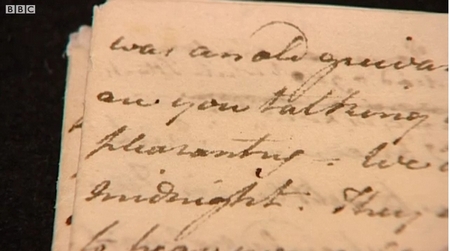 BBC
was an old grieva
on you talking
pleasantry - We
midnight. They